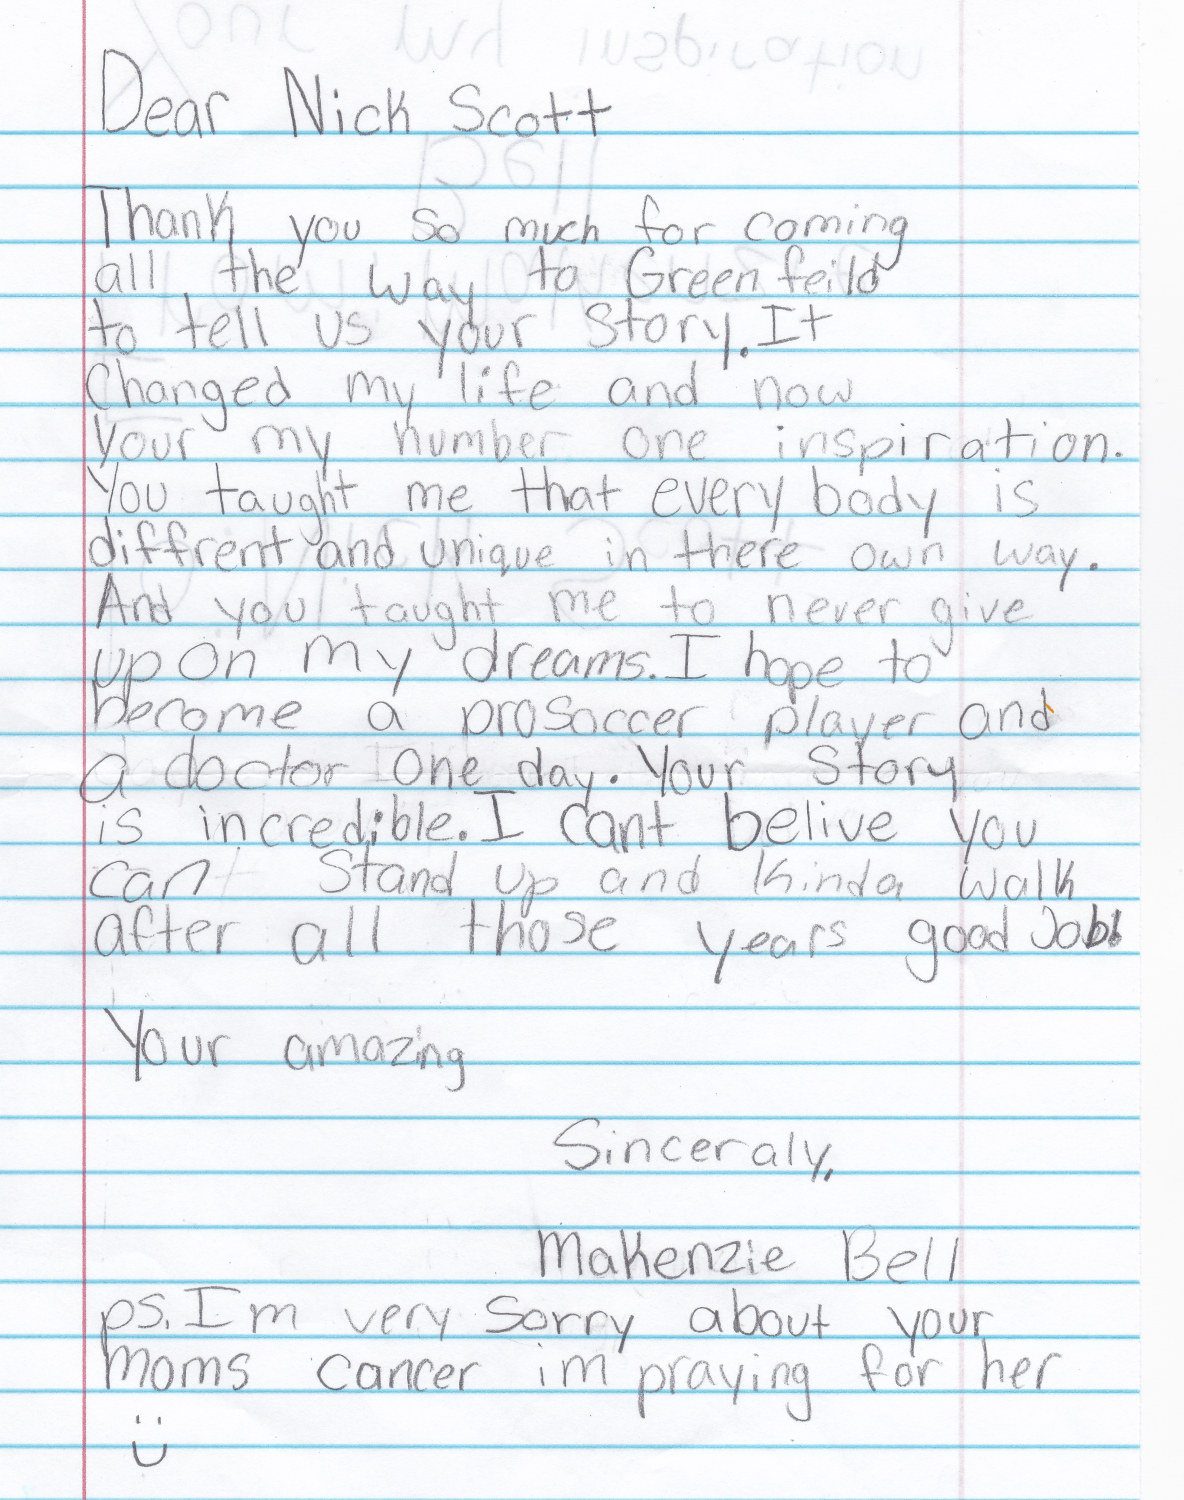 Dear Nick Scott
Thank you so much for coming
all the way to Greenfeild
to tell us your Story. It
Changed my life and now
your my number one inspiration.
You taught me that every body is
diffrent and unique in there own way.
And you taught me to never give
up on my dreams. I hope to
become a prosoccer player and
a doctor one day. Your Story
is incredible. I cant belive you
can Stand up and kinda walk
after all those years good Job!
Your amazing
Sinceraly,
Makenzie Bell
ps. I'm very Sorry about your
moms cancer im praying for her